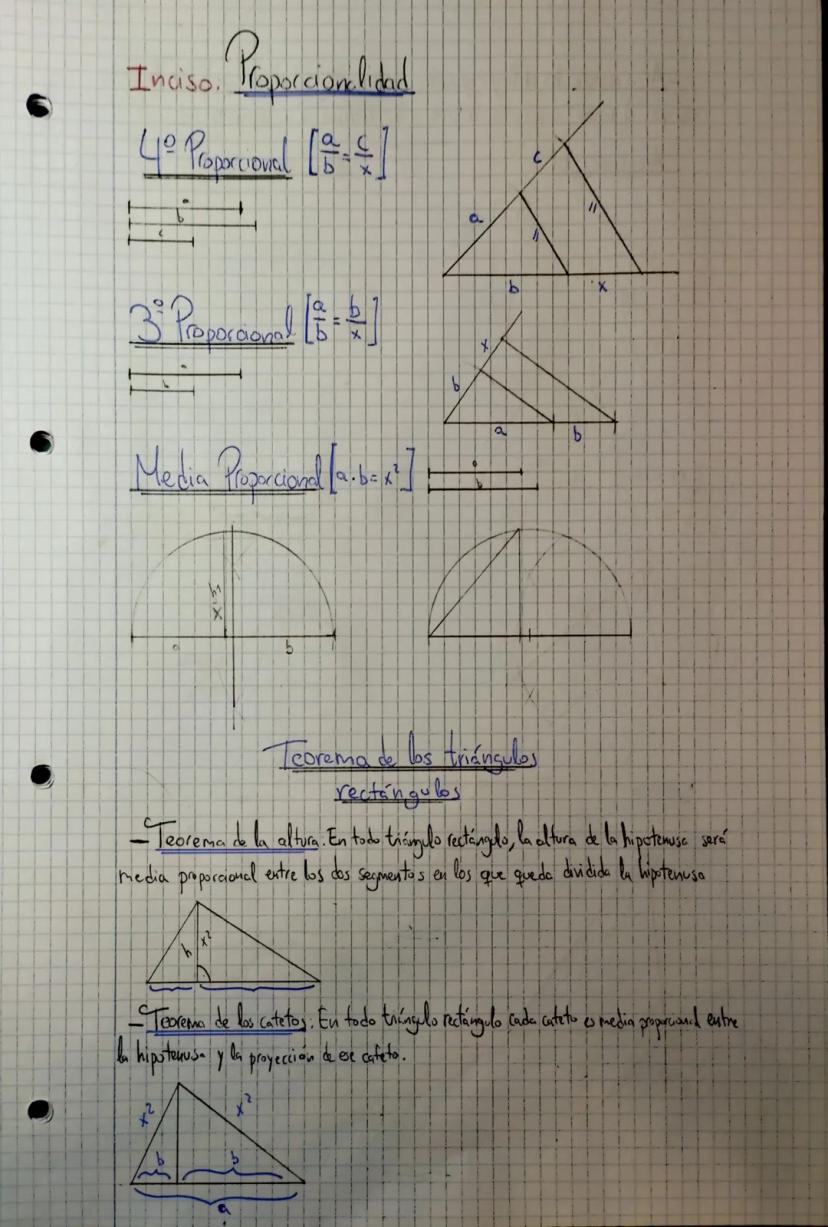 Inciso. Proporcionalidad
4º Proporcional [a/b = c/x]
a
b
c
a
c
b
x
3º Proporcional [a/b = b/x]
a
b
x
b
a
b
Media Proporcional [a·b = x²]
a
b
x=h
a
b
Teorema de los triángulos
rectángulos
- Teorema de la altura. En todo triángulo rectángulo, la altura de la hipotenusa será
media proporcional entre los dos segmentos en los que queda dividida la hipotenusa
h
x²
- Teorema de los catetos. En todo triángulo rectángulo cada cateto es media proporcional entre
la hipotenusa y la proyección de ese cateto.
x²
x²
b
b
a